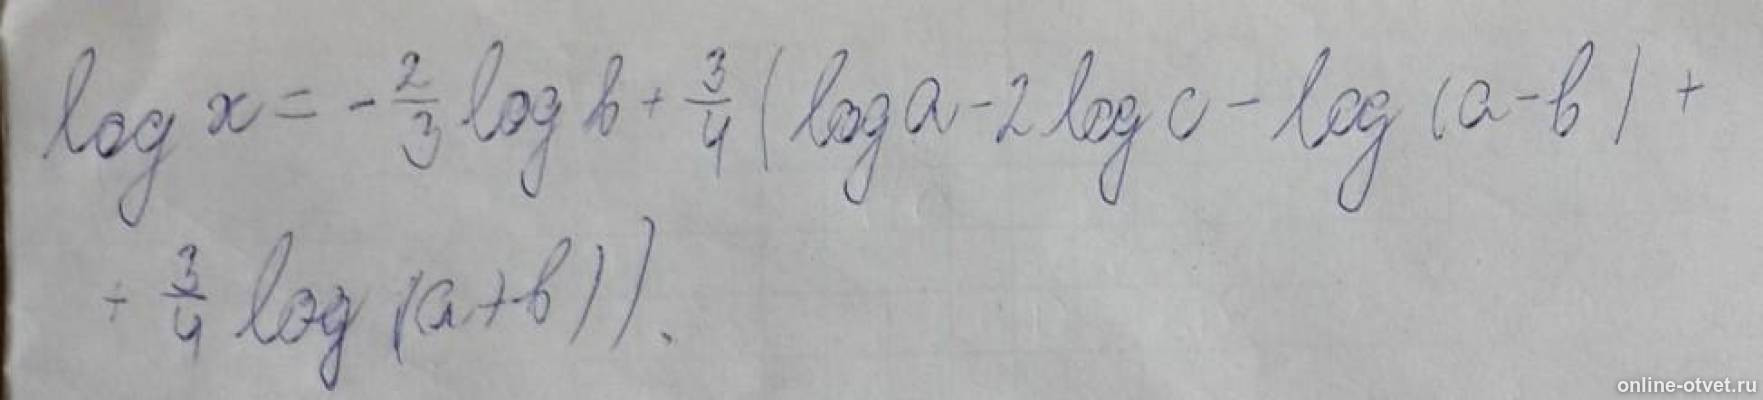 log x = - 2/3 log b + 3/4 (log a - 2 log c - log (a - b) +
+ 3/4 log (a + b)).
online-otvet.ru